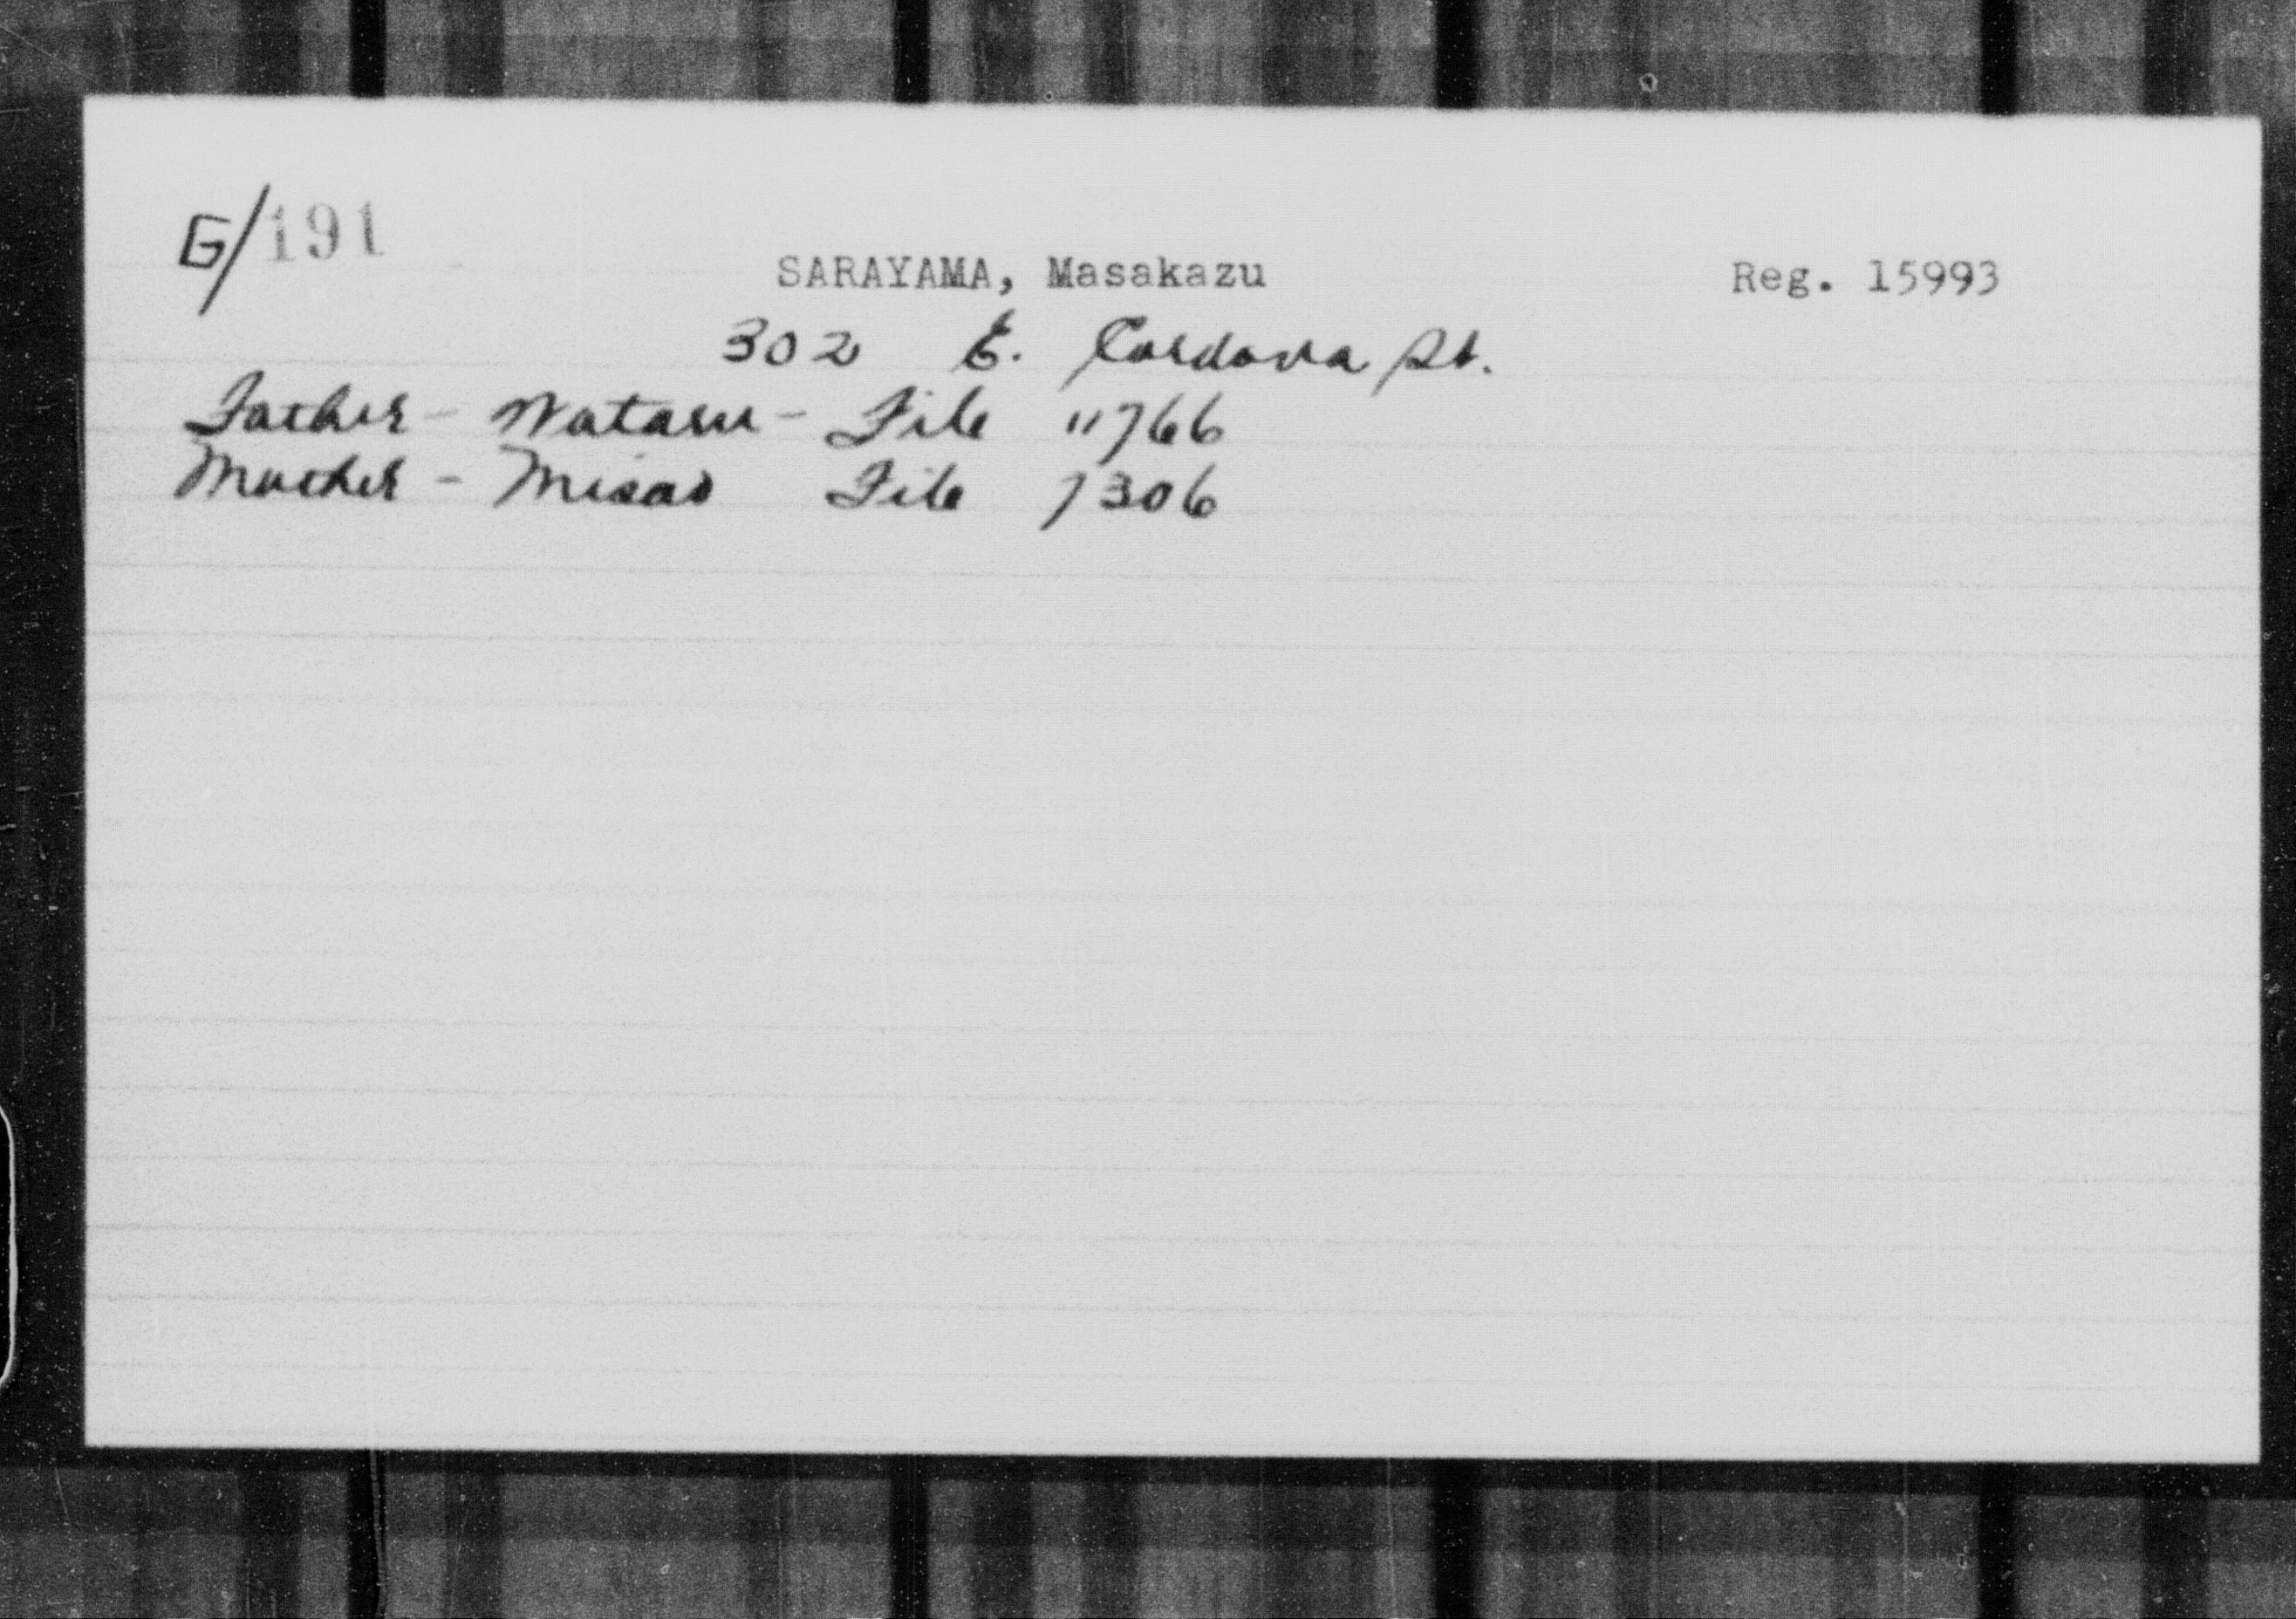 G/191
SARAYAMA, Masakazu Reg. 15993
302 E. Cordova St.
Father - Wataru - File 11766
Mother - Misao File 7306